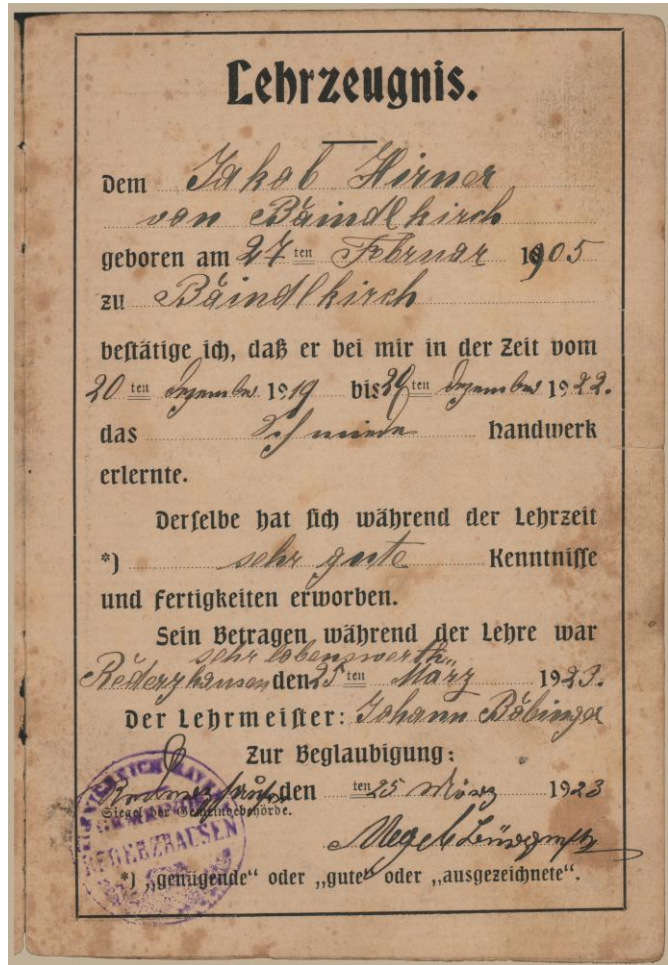 Lehrzeugnis.
Dem Jakob Hirner
von Bäindlkirch
geboren am 27ten Februar 1905
zu Bäindlkirch
bestätige ich, daß er bei mir in der Zeit vom
20ten Dezember 1919 bis 20ten Dezember 1922.
das Schmiede Handwerk
erlernte.
Derselbe hat sich während der Lehrzeit
*) sehr gute Kenntnisse
und Fertigkeiten erworben.
Sein Betragen während der Lehre war
sehr lobenswerth.
Rederzhausen den 25ten März 1923.
Der Lehrmeister: Johann Böbinger
Zur Beglaubigung:
Rederzhausen den ten25 März 1923
Siegel der Gemeindebehörde.
REDERZHAUSEN
*) „genügende“ oder „gute“ oder „ausgezeichnete“.